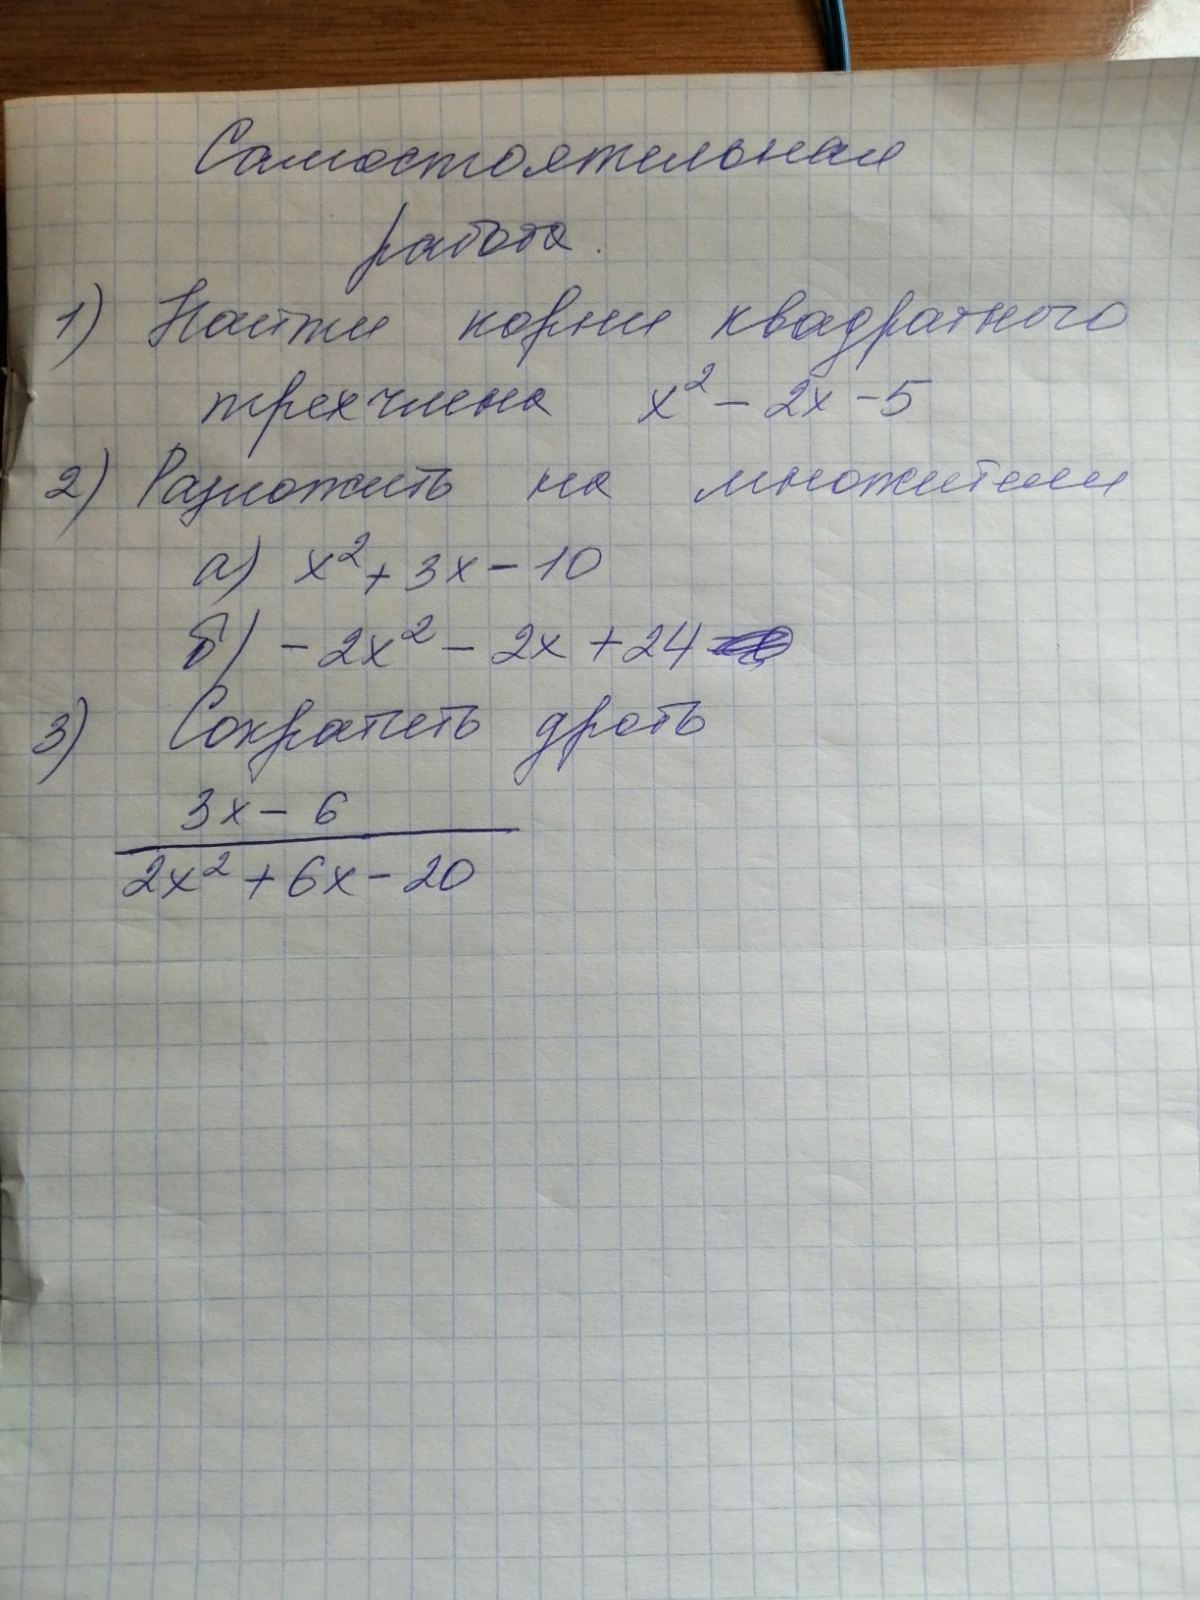 Самостоятельная
работа.
1) Найти корни квадратного
трехчлена x² - 2x - 5
2) Разложить на множители
а) x² + 3x - 10
б) - 2x² - 2x + 24
3) Сократить дробь
3x - 6
2x² + 6x - 20